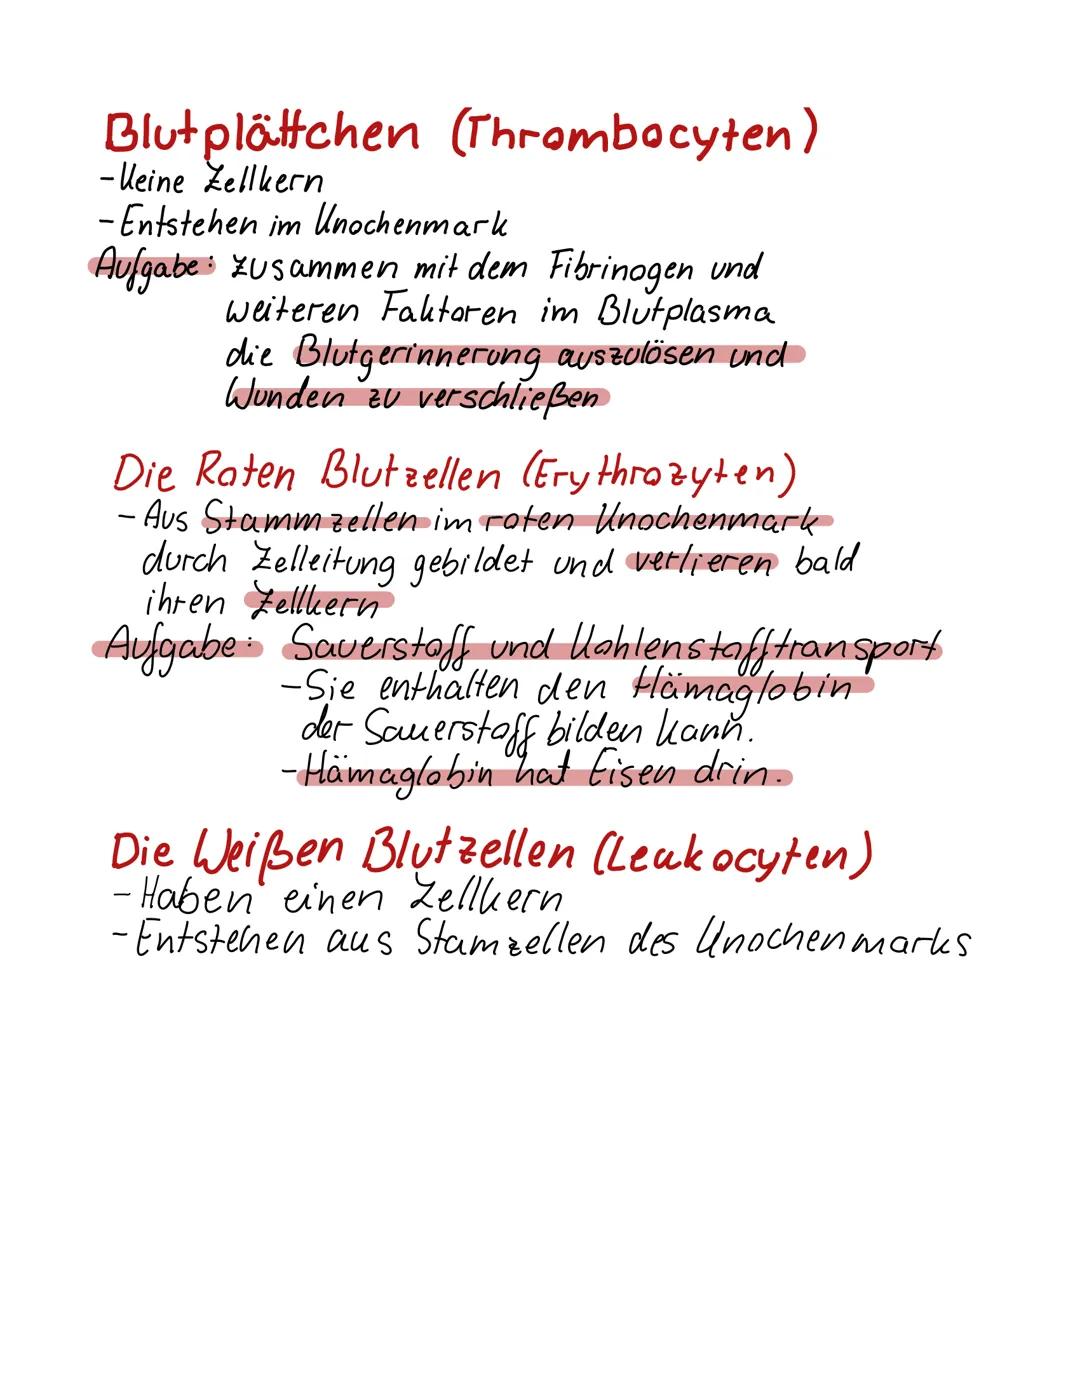 Blutplättchen (Thrombocyten)
- Keine Zellkern
- Entstehen im Knochenmark
Aufgabe: zusammen mit dem Fibrinogen und
weiteren Faktoren im Blutplasma
die Blutgerinnerung auszulösen und
Wunden zu verschließen
Die Roten Blutzellen (Erythrozyten)
- Aus Stammzellen im roten Knochenmark
durch Zelleitung gebildet und verlieren bald
ihren Zellkern
Aufgabe: Sauerstoff und Kohlenstofftransport
- Sie enthalten den Hämoglobin
der Sauerstoff bilden kann.
- Hämoglobin hat Eisen drin.
Die Weißen Blutzellen (Leukocyten)
- Haben einen Zellkern
- Entstehen aus Stamzellen des Knochenmarks